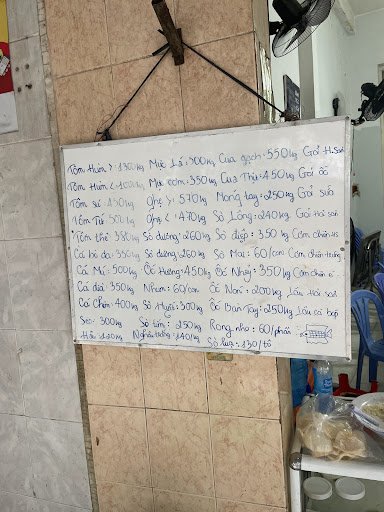 Tôm Hùm > 1300kg Mực Lá: 300kg Cua gạch: 550kg Gỏi H.Sản
Tôm Hùm < 1000kg Mực cơm: 350kg Cua Thịt: 450kg Gỏi ốc
Tôm sú 450kg Ghẹ >: 570kg Móng tay: 250kg Gỏi sứa
Tôm Tít 500kg Ghẹ <: 470kg Sò Lông: 240kg Gỏi hải sản
Tôm thẻ 380kg Sò dương: 260kg Sò điệp: 350kg Cơm chiên HS
Cá bò da: 550kg Sò đường: 260kg Sò Mai: 60/con Cơm chiên trứng
Cá Mú: 500kg Ốc Hương: 450kg Ốc Nhảy: 350kg Cơm chiên
Cá dìa: 350kg Nhum: 60/con Ốc Nón: 200kg Lẩu hải sản
Cá Chim: 400kg Sò Huyết: 300kg Ốc Bàn Tay: 250kg Lẩu cá bớp
Sẹo: 300kg Sò tím: 250kg Rong nho: 60/phần
Hàu: 120kg Nghêu trắng: 140kg Sò lụa: 130/tô